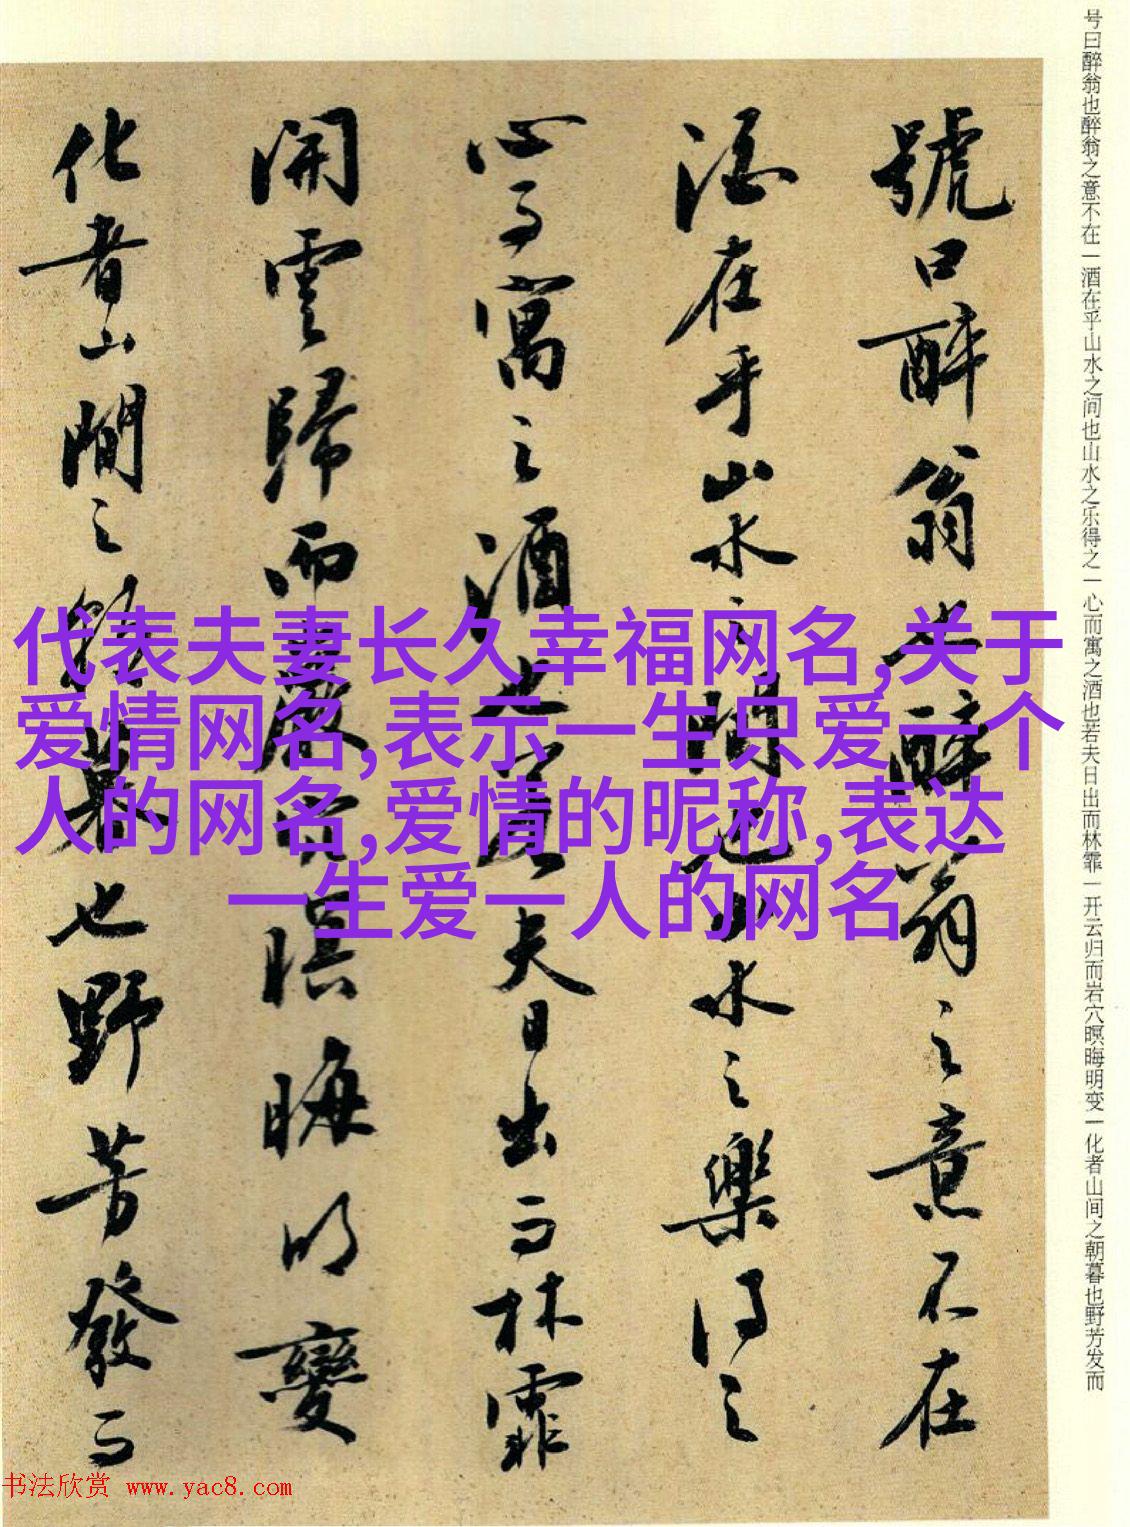 号曰醉翁也醉翁之意不在一酒在乎山水之间也山水之乐得之一心而寓之酒也若夫日出而林霏一开云归而岩穴暝晦明变一化者山间之朝暮也野芳发而
號曰醉翁也醉翁之意不在
酒在乎山水之間也山水之樂得之
心而寓之酒也若夫日出而林霏
開雲歸而巖穴暝晦明變
化者山間之朝暮也野芳發而
代表夫妻长久幸福网名,关于
爱情网名,表示一生只爱一个
人的网名,爱情的昵称,表达
一生爱一人的网名
书法欣赏 www.yac8.com